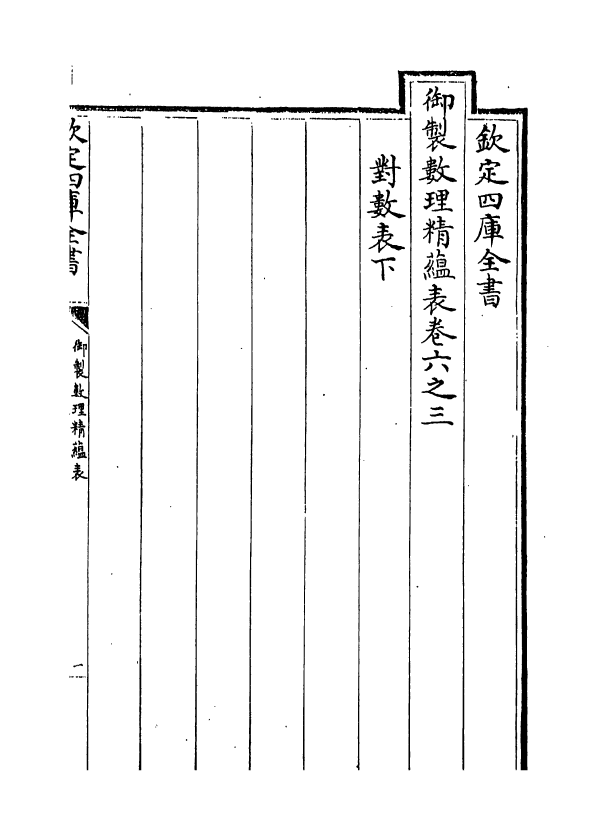 欽定四庫全書
御製數理精蘊表卷六之三
對數表下
欽定四庫全書
御製數理精蘊表
一